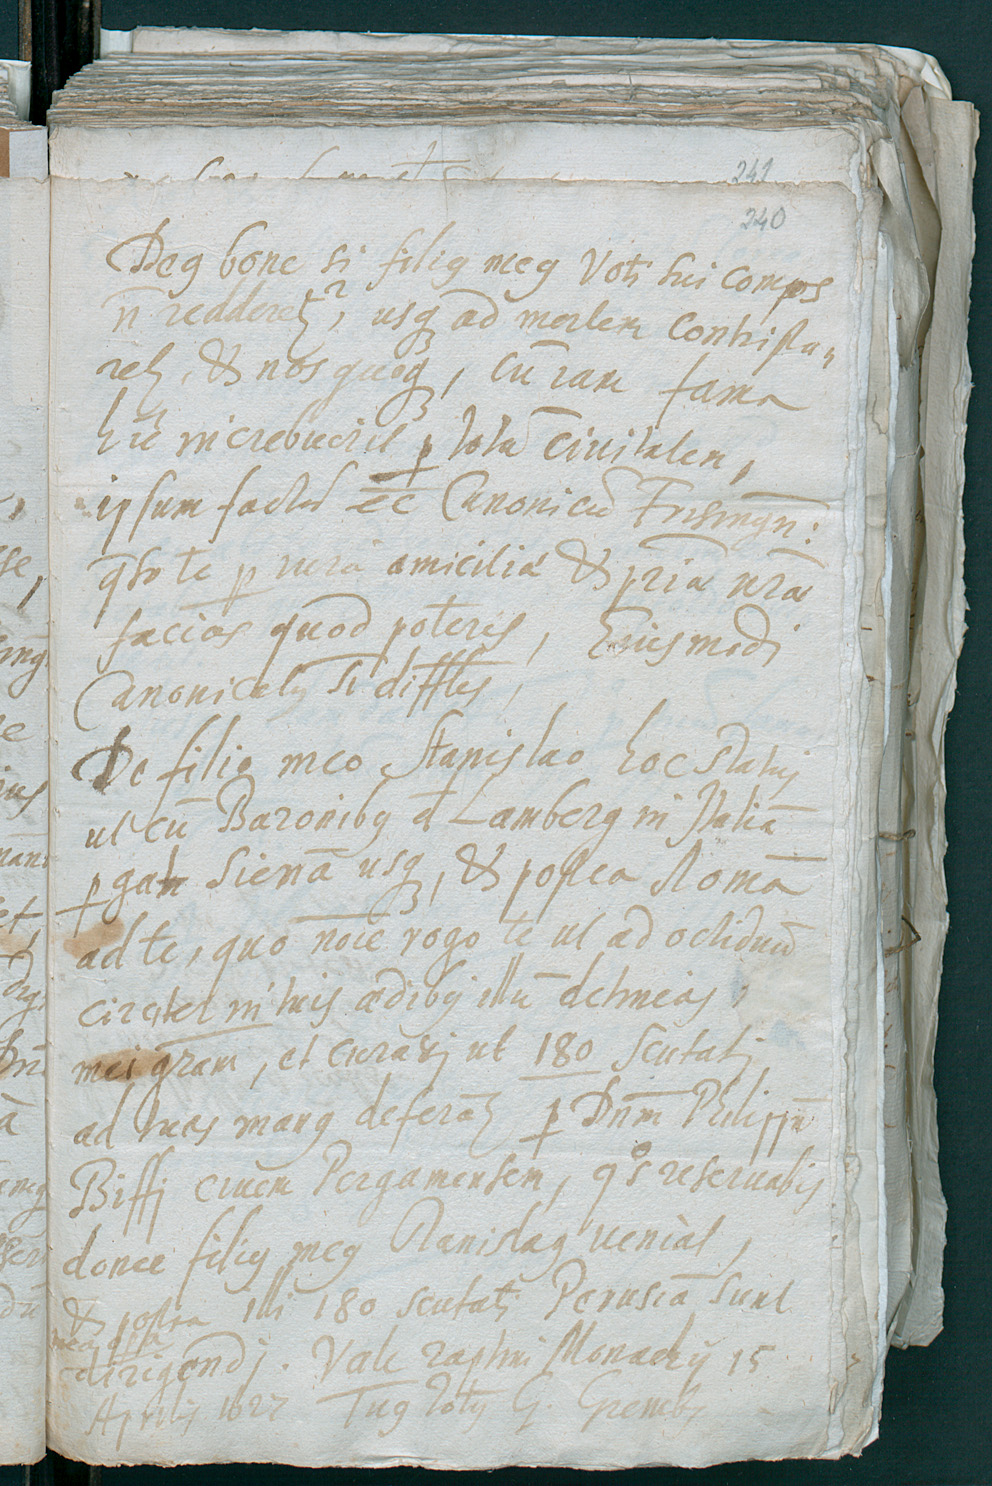 241
240
Deus bone si filius meus Voti sui compos
n̄ redderet2, usq3 ad mortem contrista„
ret, & nos quoq3, cū iam fama
increbuerit p tota Civitatem,
ipsum factū ēē Canonicū Frisingn:
q̄so te p verā amicitiā & pr̄iā nrā
facias quod poteris, Eiusmodi
Canonicatus si difficilis,
De filio meo Stanislao hoc statui
ut cū Baronibus a Lamberg in Italiā
pgat Sienā usq3, & postea Romā
ad te, quo noīe rogo te ut ad octiduū
circiter in tuis ædibus illū detineas,
mei gr̄am, et curavi ut 180 Scutati
ad tuas manus deferāt2 p Dn̄m Philippū
Biffi civem Pergamensem, q̊s reservabis
donec filius meus Stanislaus veniat,
& postea illi 180 scutati Perusiā sunt
dirigendi. Vale raptim Monachij 15
Aprilis 1627 Tuus totus G.